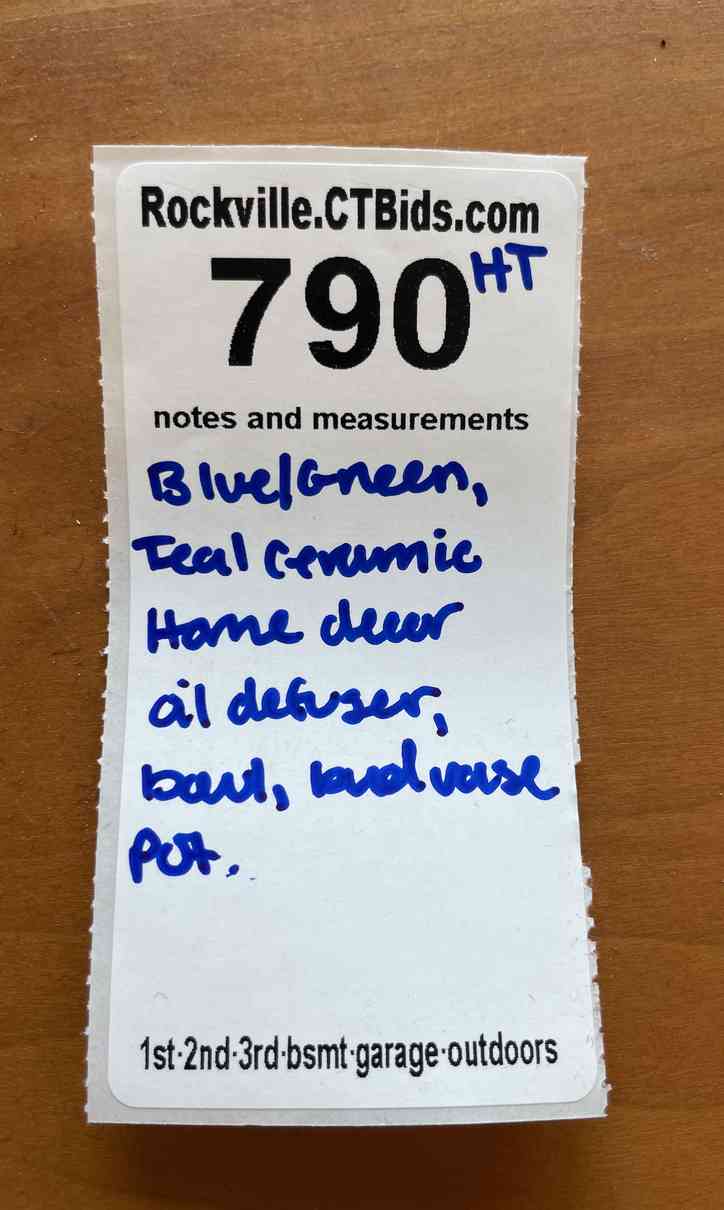 Rockville.CTBids.com
790 HT
notes and measurements
Blue/Green,
Teal Ceramic
Home decor
oil defuser,
bowl, budvase
Pot.
1st·2nd·3rd·bsmt·garage·outdoors